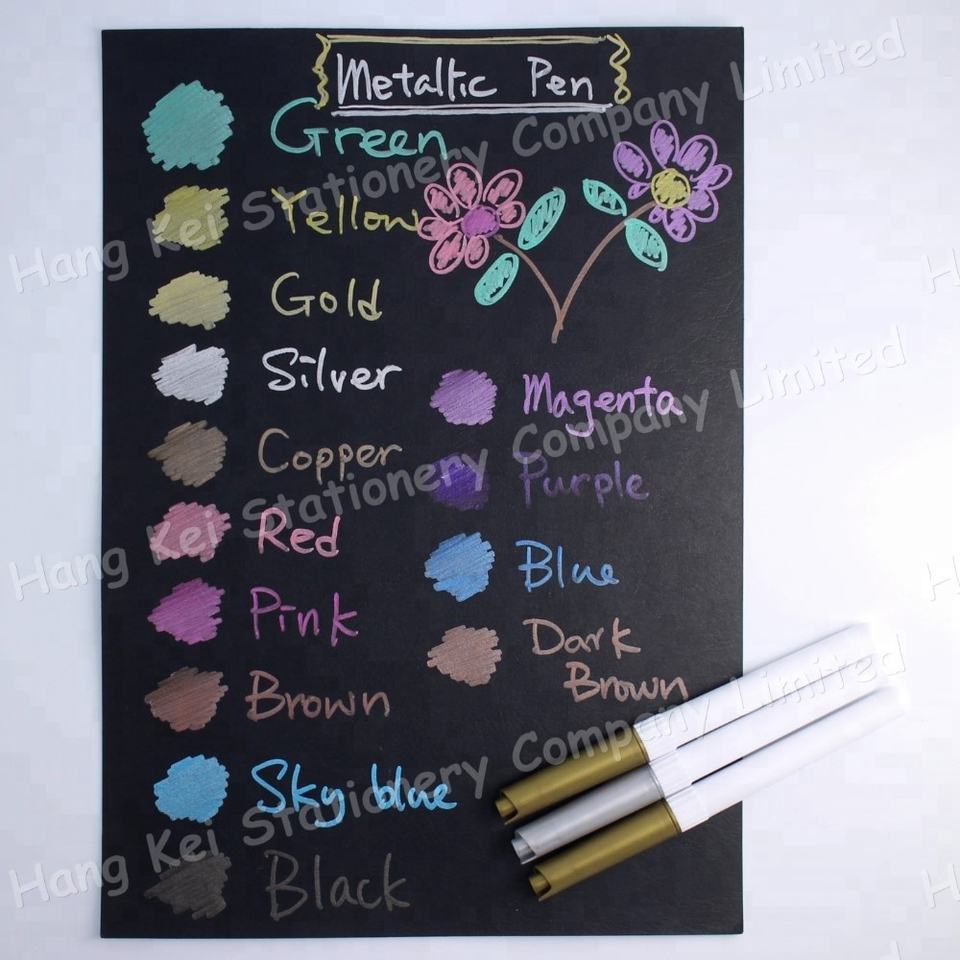 Metallic Pen
Green
Yellow
Gold
Silver
Copper
Red
Pink
Brown
Sky blue
Black
Magenta
Purple
Blue
Dark
Brown
Hang Kei Stationery Company Limited
Hang Kei Stationery Company Limited
Hang Kei Stationery Company Limited